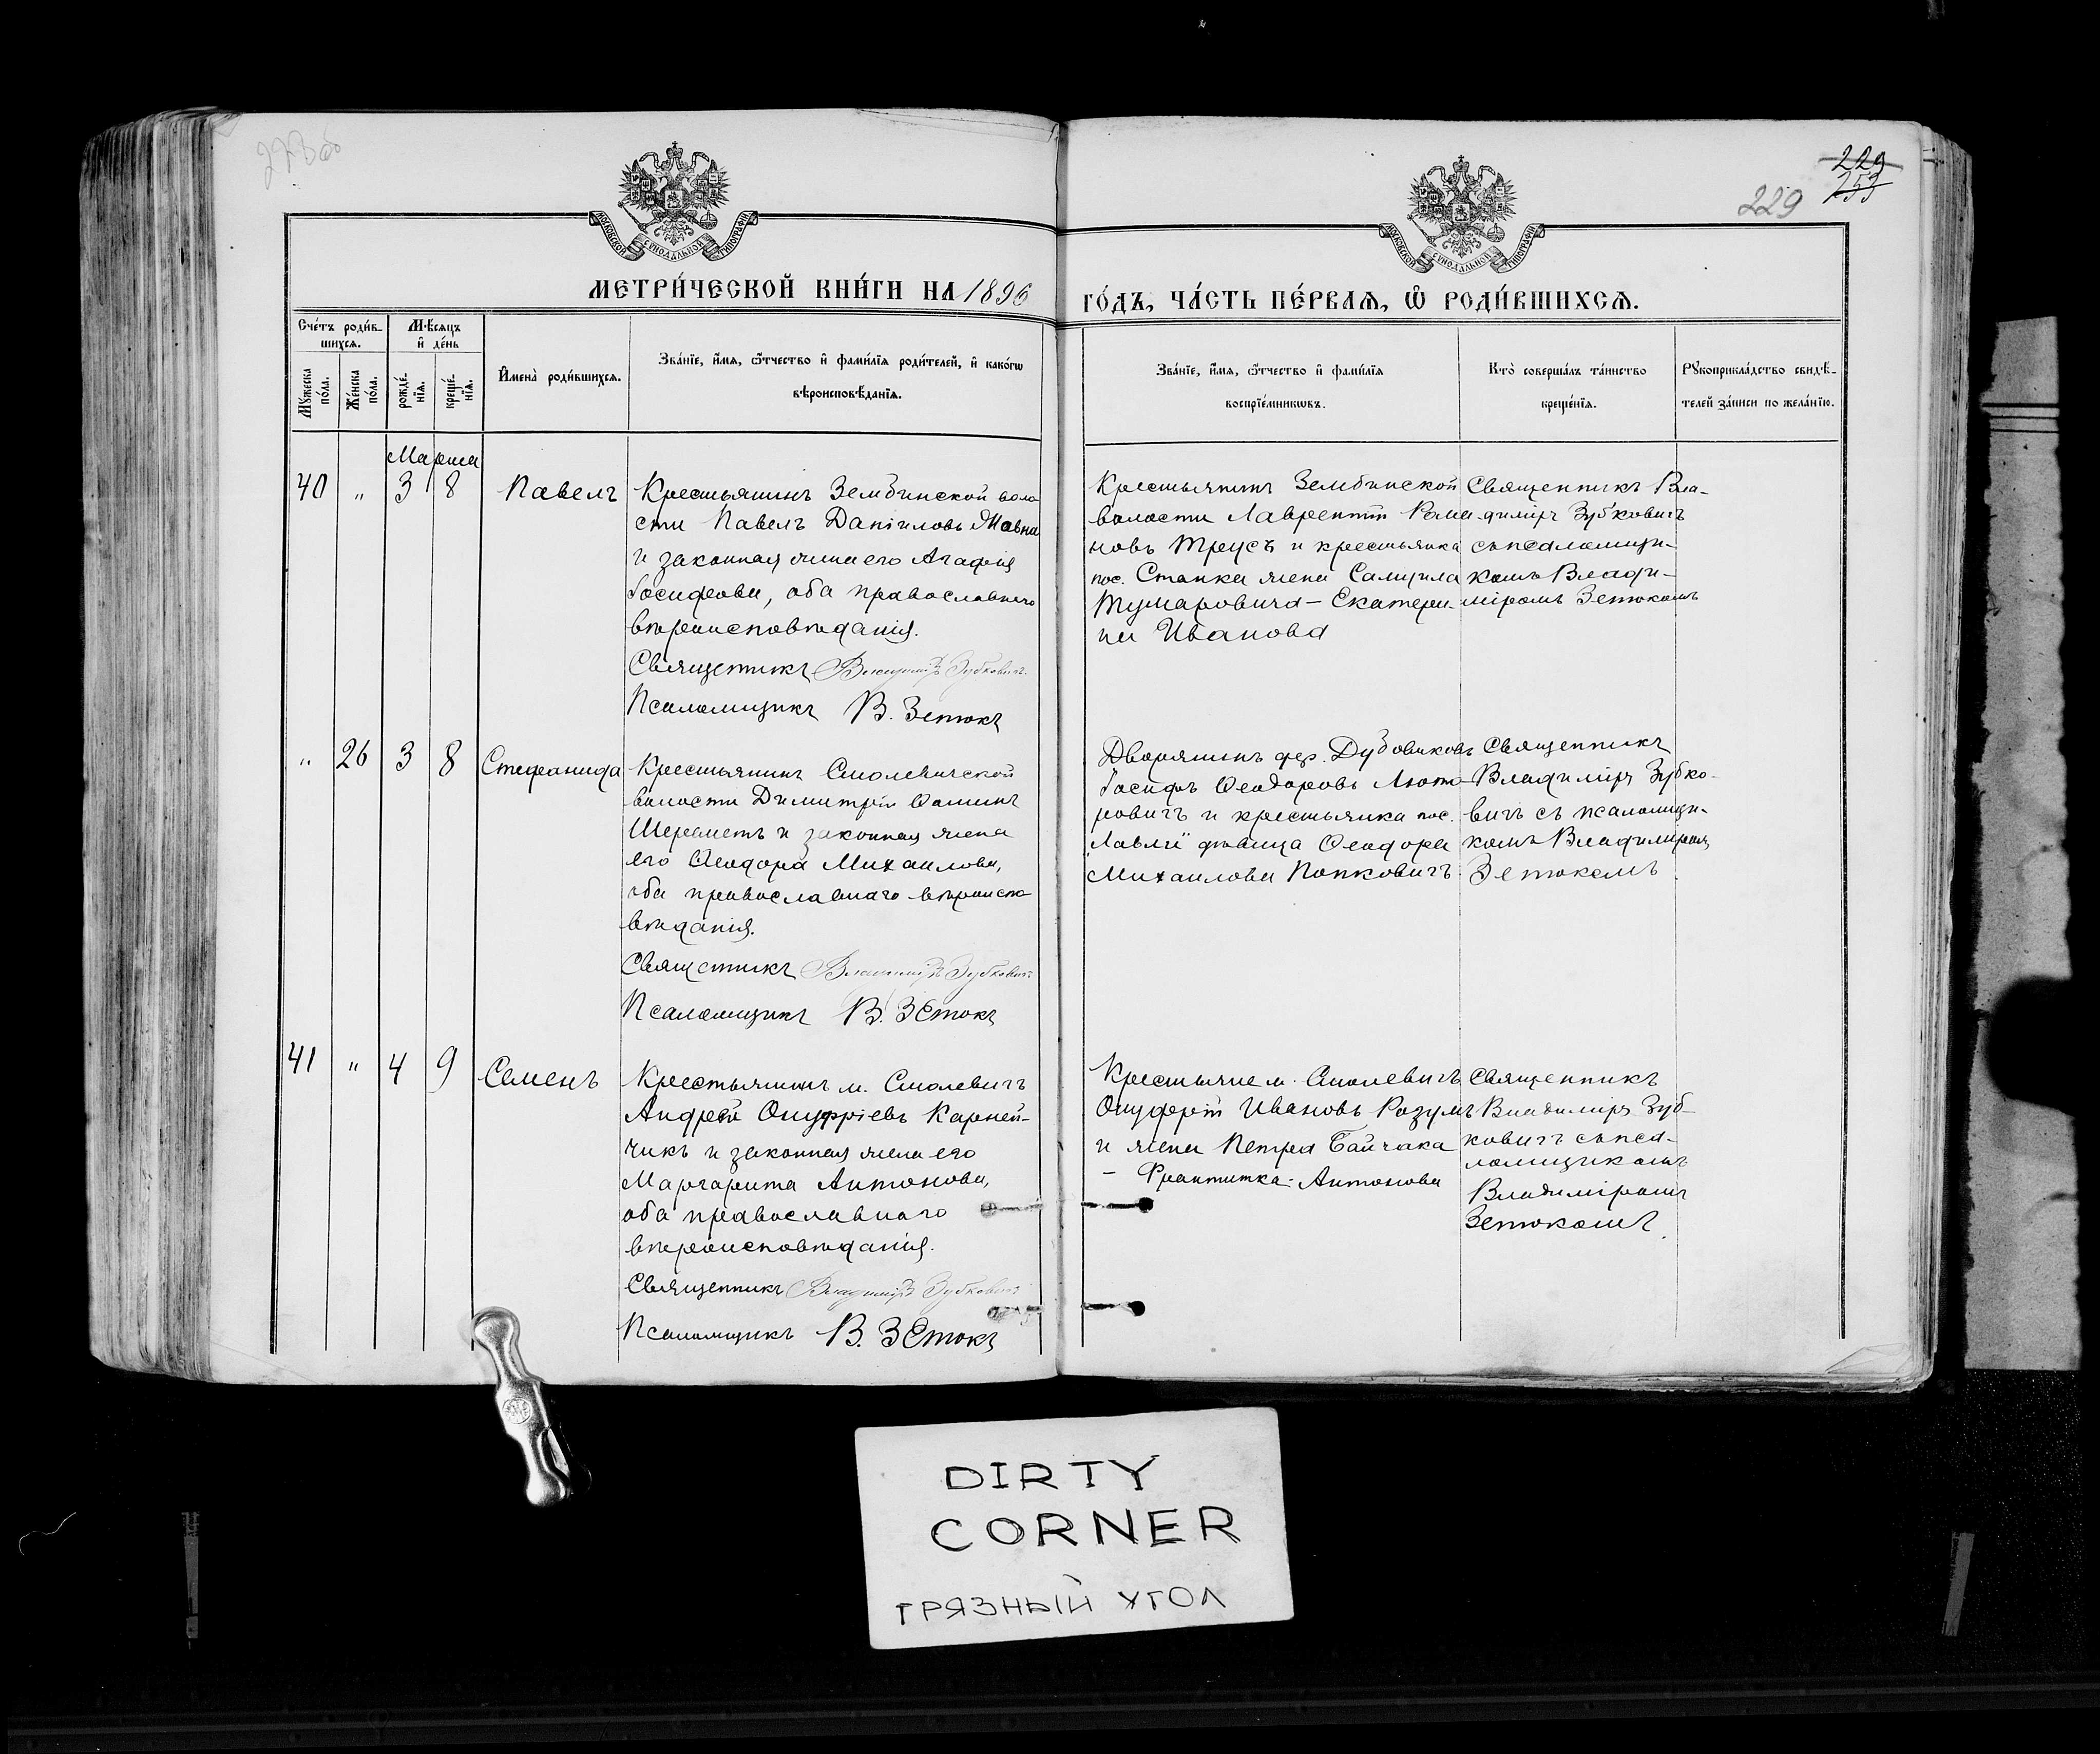 228об
229
253
229
МОСКОВСКОЙ СѴНОДАЛЬНОЙ ТИПОГРАФІИ
МОСКОВСКОЙ СѴНОДАЛЬНОЙ ТИПОГРАФІИ
МЕТРИ́ЧЕСКОЙ КНИ́ГИ НА 1896
ГО́ДЪ, ЧА́СТЬ ПЕ́РВАѦ, Ѡ҆ РОДИ́ВШИХСѦ.
Сче́тъ роди́в-
шихсѧ.
Мѹ́жеска
по́ла.
Же́нска
по́ла.
Мѣ́сѧцъ
и҆ де́нь
рожде́-
нїѧ.
креще́-
нїѧ.
И҆мена̀ роди́вшихсѧ.
Зва́нїе, и҆́мѧ, ѻ҆́тчество и҆ фами́лїѧ роди́телей, и҆ како́гѡ
вѣроисповѣ́данїѧ.
Зва́нїе, и҆́мѧ, ѻ҆́тчество и҆ фами́лїѧ
воспрїе́мникѡвъ.
Кто̀ соверша́лъ та́инство
креще́нїѧ.
Рꙋкоприкла́дство свидѣ́-
телей за́писи по жела́нїю.
Марта
40 " 3 8 Павелъ
Крестьянинъ Зембинской воло
сти Павелъ Даніиловъ
и законная жена его Агафія
Іосифова, оба православнаго
вѣроисповѣданія.
Священникъ Владиміръ Зубковичъ.
Псаломщикъ В. Зетокъ
Крестьянинъ Зембинской
волости Лаврентій Рома
новъ Трусъ и крестьянка
пос. Станка жена Самуила
Тумаровича – Екатери-
на Иванова
Священникъ Вла-
диміръ Зубковичъ
съ псаломщи-
комъ Влади-
міромъ Зетокомъ
" 26 3 8 Стефанида
Крестьянинъ Смолевичской
волости Димитрій Ѳоминъ
Шереметъ и законная жена
его Ѳеодора Михаилова,
оба православнаго вѣроиспо
вѣданія.
Священникъ Владиміръ Зубковичъ
Псаломщикъ В. Зетокъ
Дворянинъ дер. Дубовиковъ
Іосифъ Ѳеодоровъ Люто
ровичъ и крестьянка пос.
дѣвица Ѳеодора
Михаилова Попковичъ
Священникъ
Владиміръ Зубко-
вичъ съ псаломщи-
комъ Владиміромъ
Зетокомъ
41 " 4 9 Семенъ
Крестьянинъ м. Смолевичъ
Андрей Онуфріевъ Карней-
чикъ и законная жена его
Маргарита Антонова,
оба православнаго
вѣроисповѣданія.
Священникъ Владиміръ Зубковичъ
Псаломщикъ В. Зетокъ
Крестьяне м. Смолевичъ
Онуфрій Ивановъ Розумъ
и жена Петра Байчака
– Франтишка Антонова
Священникъ
Владиміръ Зуб-
ковичъ съ пса-
ломщикомъ
Владиміромъ
Зетокомъ.
DIRTY
CORNER
ГРЯЗНЫЙ УГОЛ